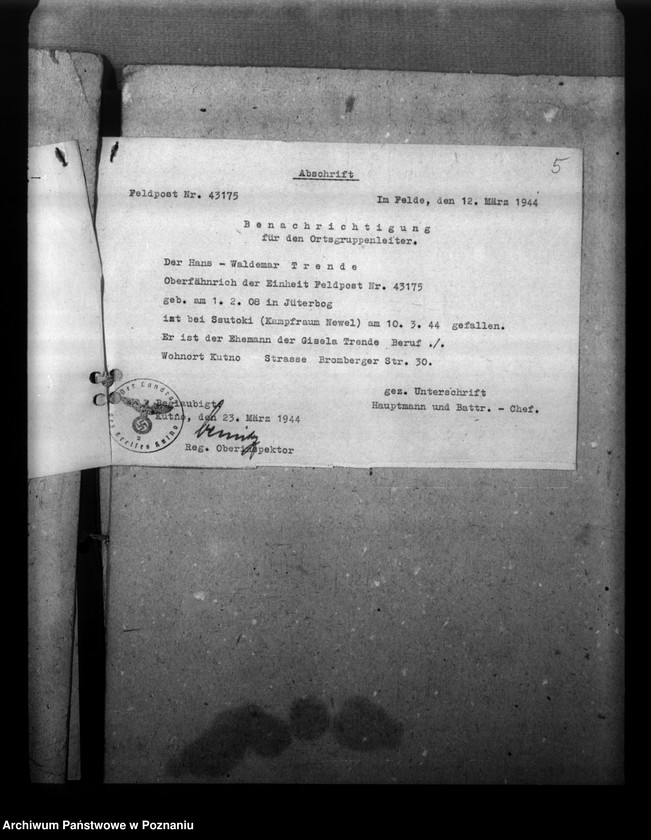 5
Abschrift
Feldpost Nr. 43175 Im Felde, den 12. März 1944
B e n a c h r i c h t i g u n g
für den Ortsgruppenleiter.
Der Hans - Waldemar T r e n d e
Oberfähnrich der Einheit Feldpost Nr. 43175
geb. am 1. 2. 08 in Jüterbog
ist bei Ssutoki (Kampfraum Newel) am 10. 3. 44 gefallen.
Er ist der Ehemann der Gisela Trende Beruf ./.
Wohnort Kutno Strasse Bromberger Str. 30.
gez. Unterschrift
Hauptmann und Battr. - Chef.
Beglaubigt
Kutno, den 23. März 1944
Reg. Oberinspektor
Der Landrat
des Kreises Kutno
Archiwum Państwowe w Poznaniu